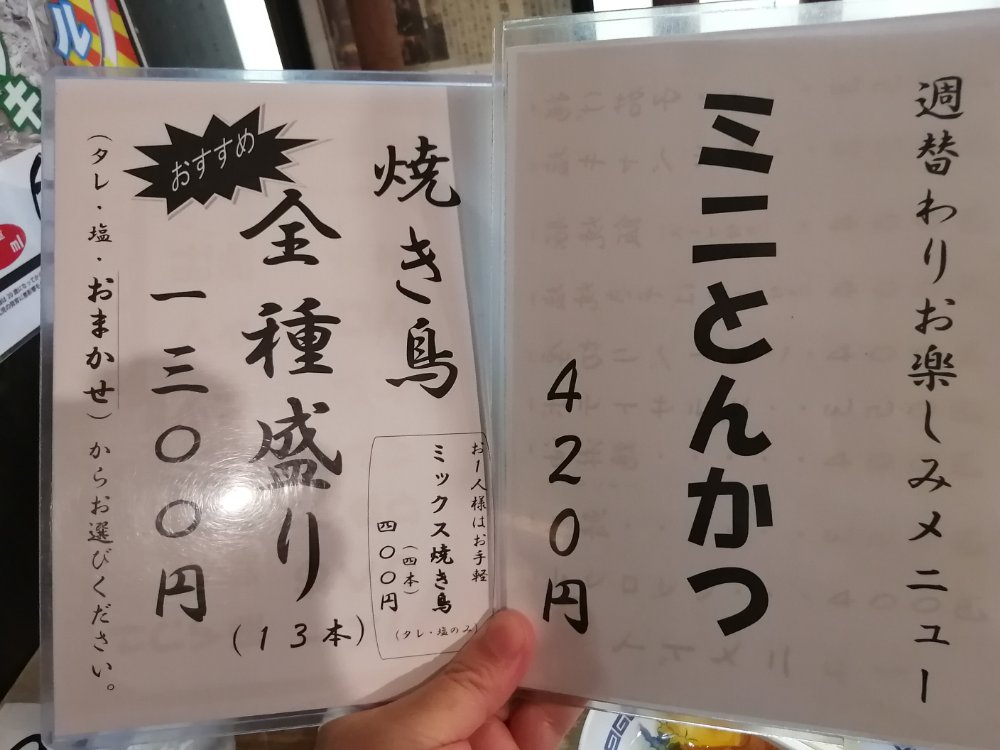 週替わりお楽しみメニュー
ミニとんかつ
420円
焼き鳥
おすすめ
全種盛り
(13本)
一三〇〇円
(タレ・塩・おまかせ)からお選びください。
お一人様はお手軽
ミックス焼き鳥
(四本)
四〇〇円
(タレ・塩のみ)
ル
キ
ml